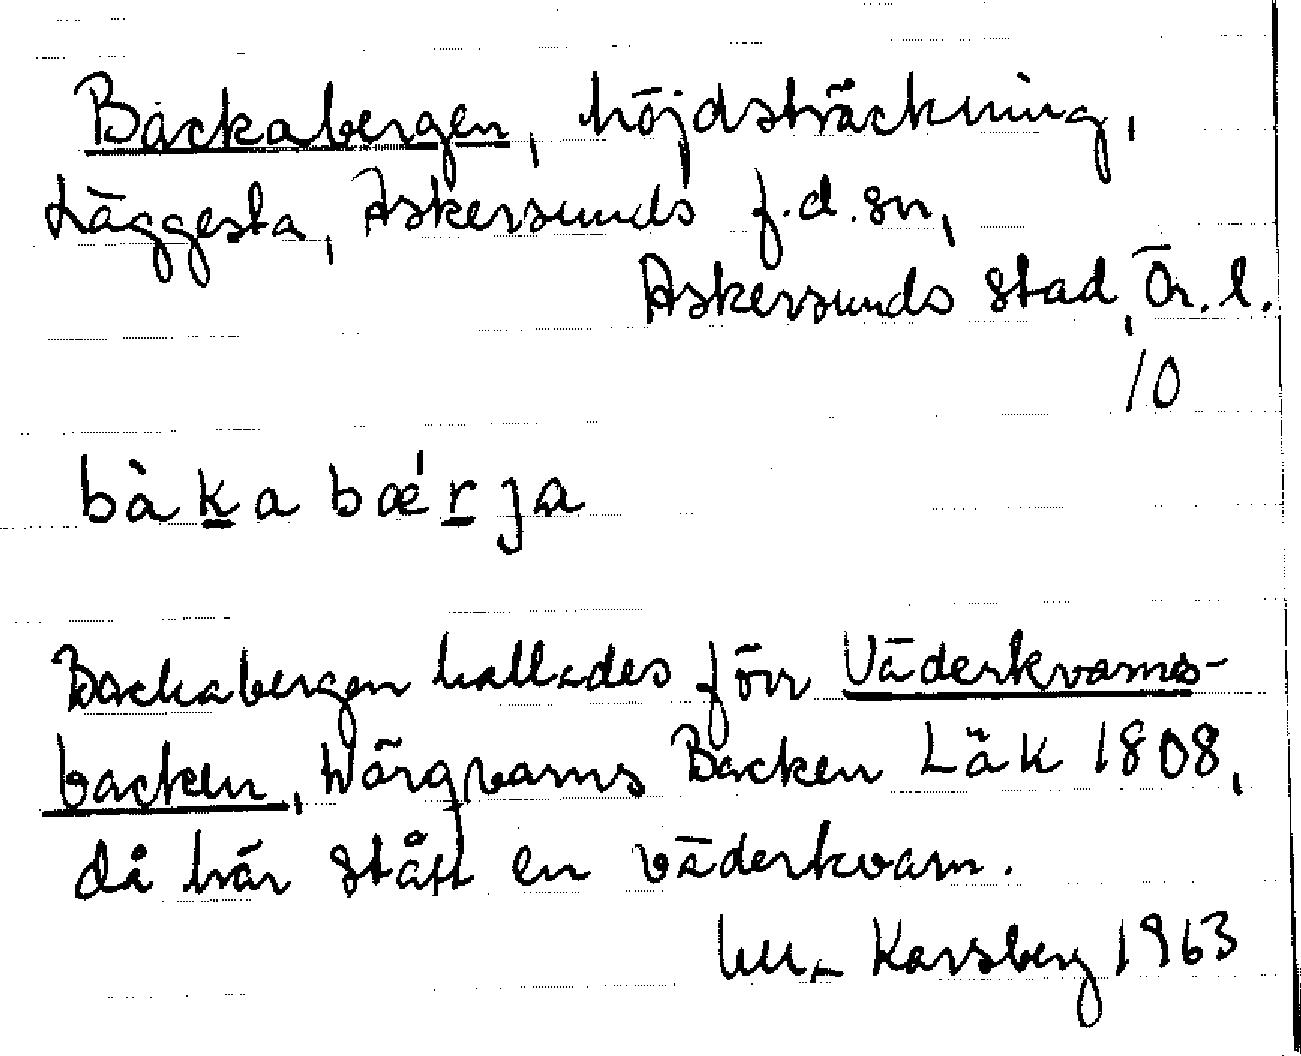 Backabergen, höjdsträckning,
Häggesta, Askersunds f.d. sn,
Askersunds stad, Ör. l.
10
bàka bǽrja
Backabergen kallades förr Väderkvarns-
backen, Wärqvarns Backen Läk 1808,
då här stått en väderkvarn.
Karsberg 1963